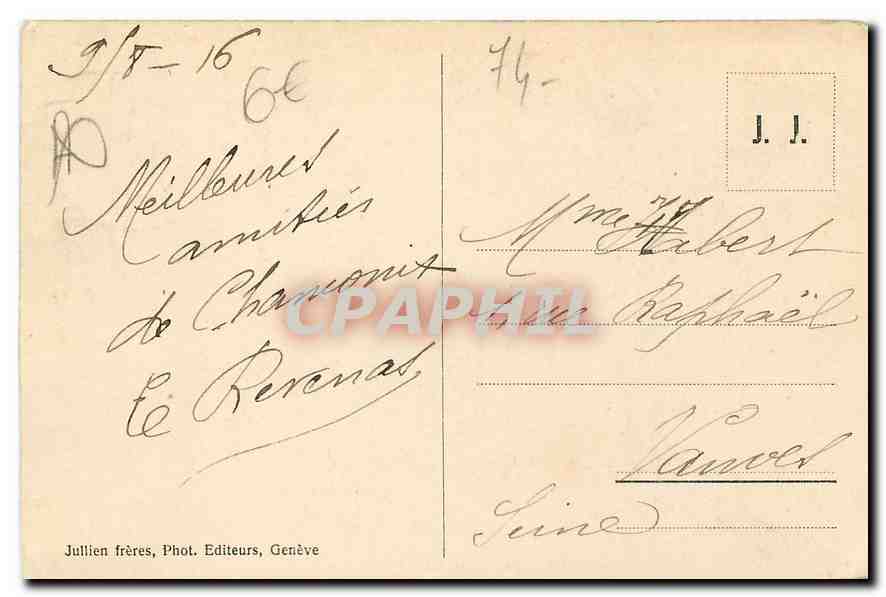 9/8-16
6€
74-
J. J.
Meilleures
amitiés
de Chamonix
E Revenas
Mme Habert
rue Raphaël
Vanves
Seine
CPAPHIL
Jullien frères, Phot. Editeurs, Genève